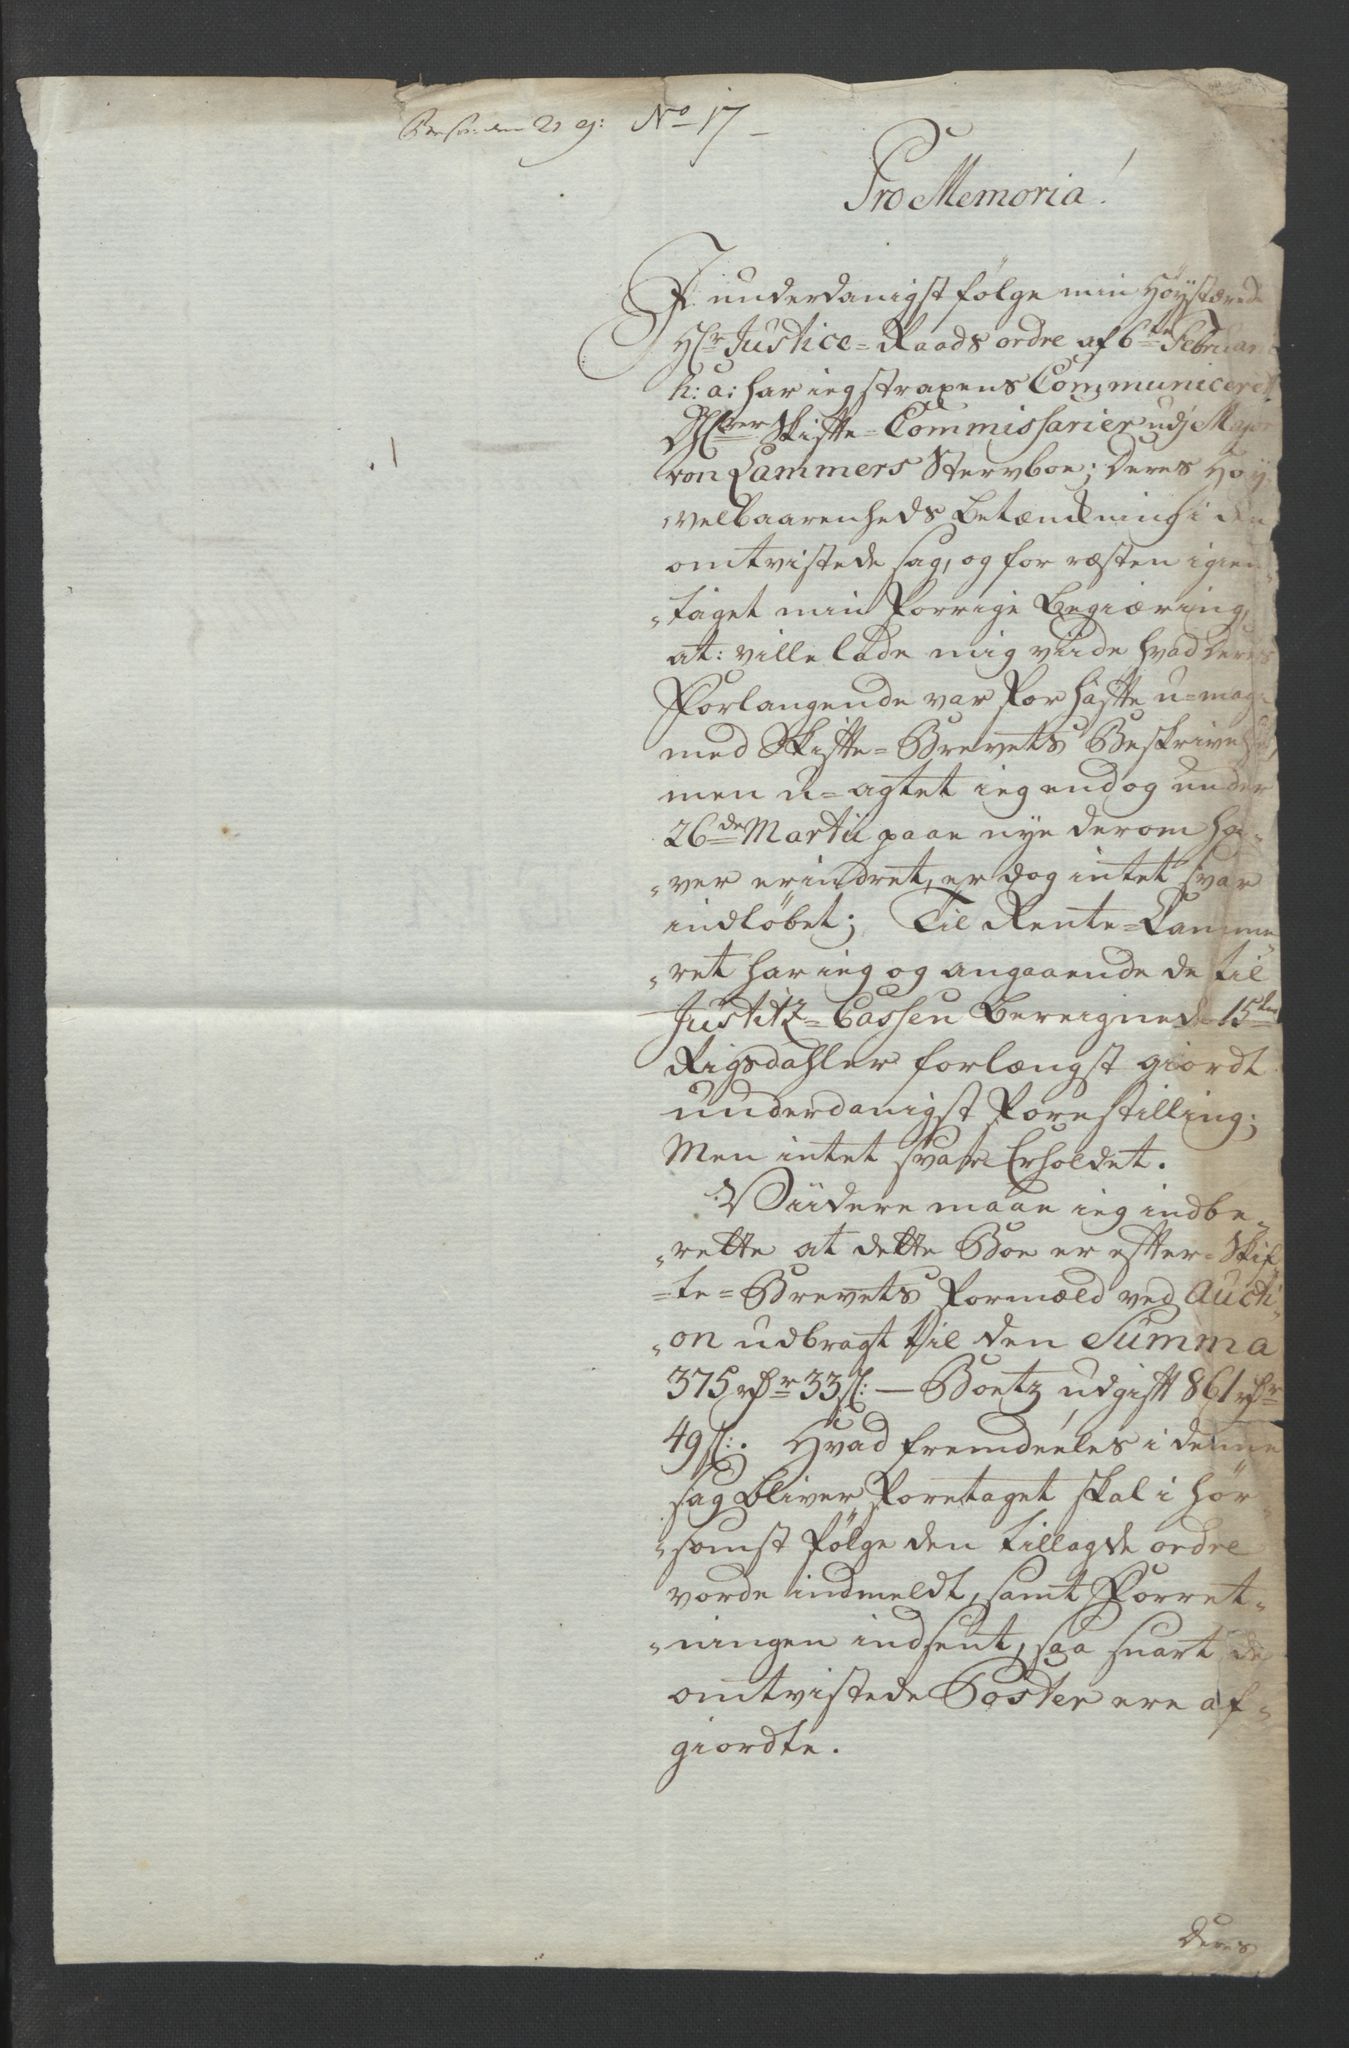 No 17
Pro Memoria!
I underdanigst følge min Høystærede
Hr Justice=Raads ordre af 6te Februari
h: a: har ieg straxens Communiceret
Hrer Skifte=Commissarier udj Major
von Lammers Stervboe; Deres Høy
velbaarenheds Betænkning i den
omtvistede sag, og for ræsten igien-
-taget min Forrige Begiæring,
at: ville lade mig viide hvad Deres
Forlangende var for hafte u=mage
med Skifte=Brevets Beskrivelse,
men u=agtet ieg endog under
26de Martii paae nye derom ha-
-ver erindret, er dog intet svar
indløbet; Til Rente=Camme
-ret har ieg og angaaende de til
Justitz=Cassen Bereignede 15ten
Rigsdahler forlængst giordt
underdanigst Forestilling;
Men intet svar Erholdet.
Viidere maae ieg indbe-
-rette at dette Boe er efter Skif
=te=Brevets Formæld ved Aucti-
-on udbragt til den Summa
375 rdr 33 s: — Boetz udgift 861 rdr
49 s:. Hvad fremdeeles i denne
sag bliver Foretaget skal i hør-
-somst følge den tillagde ordre
vorde indmeldt, samt Forret-
-ningen indsent, saa snart de
omtvistede Poster ere af-
giordte.
Deres